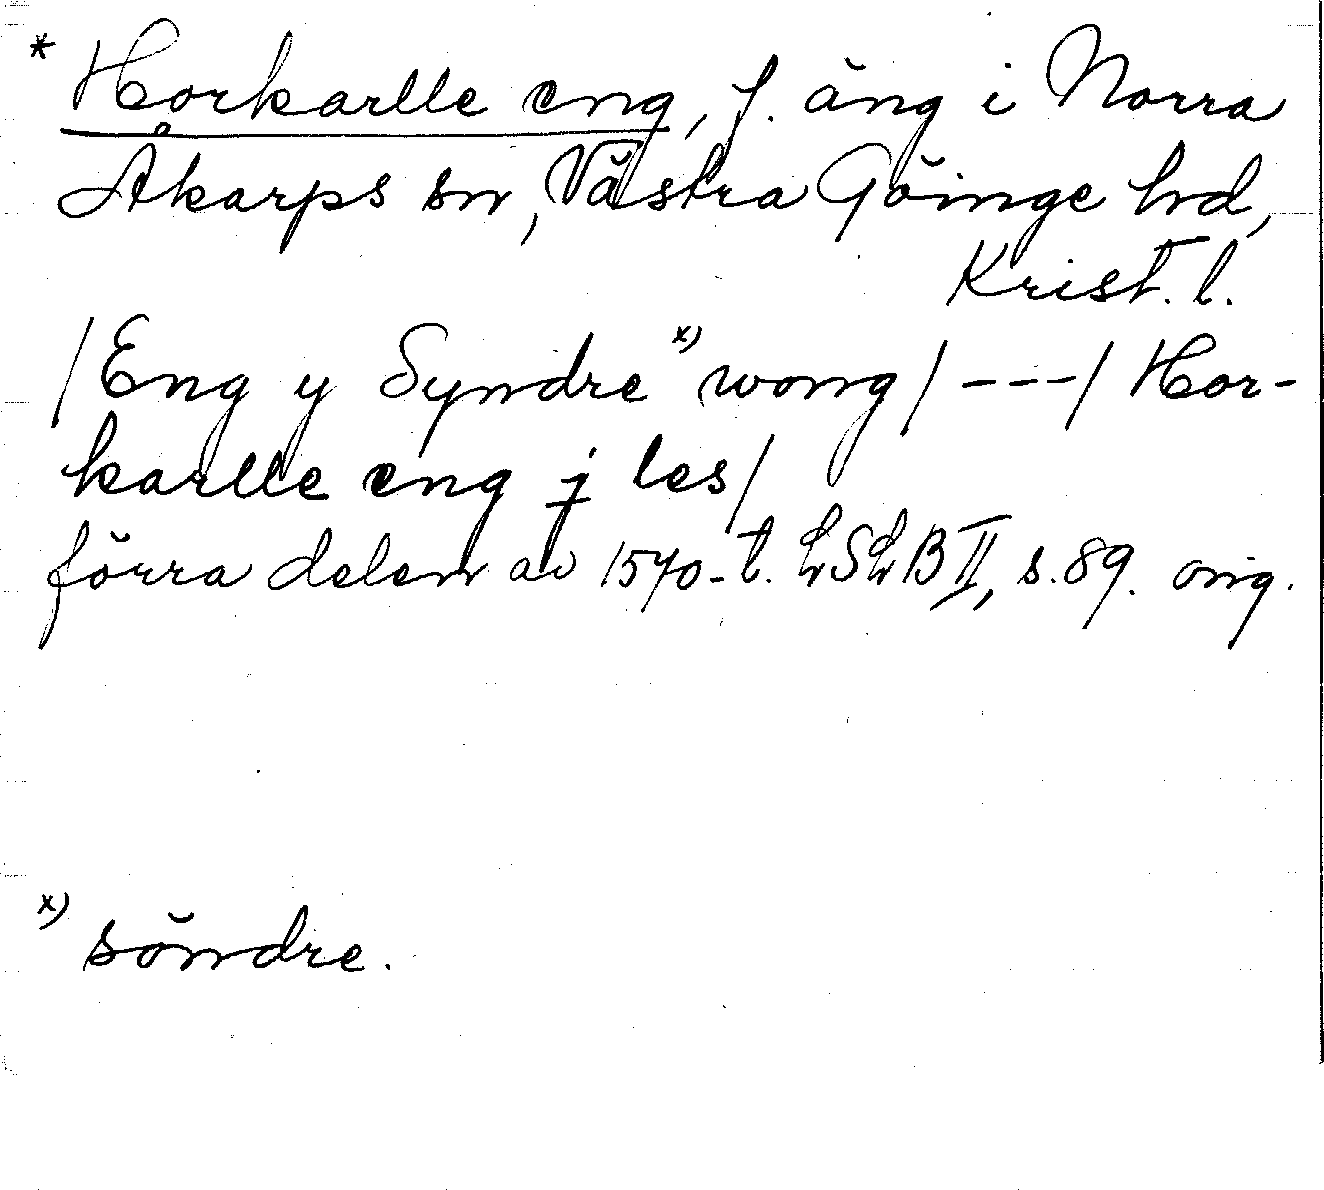 * Horkarlle eng, f. äng i Norra
Åkarps sn, Västra Göinge hd,
Krist. l.
/Eng y Syndre x) wong/ --- / Hor-
karlle eng j les/
förra delen av 1570-t. LSLB II, s. 89. orig.
x) söndre.